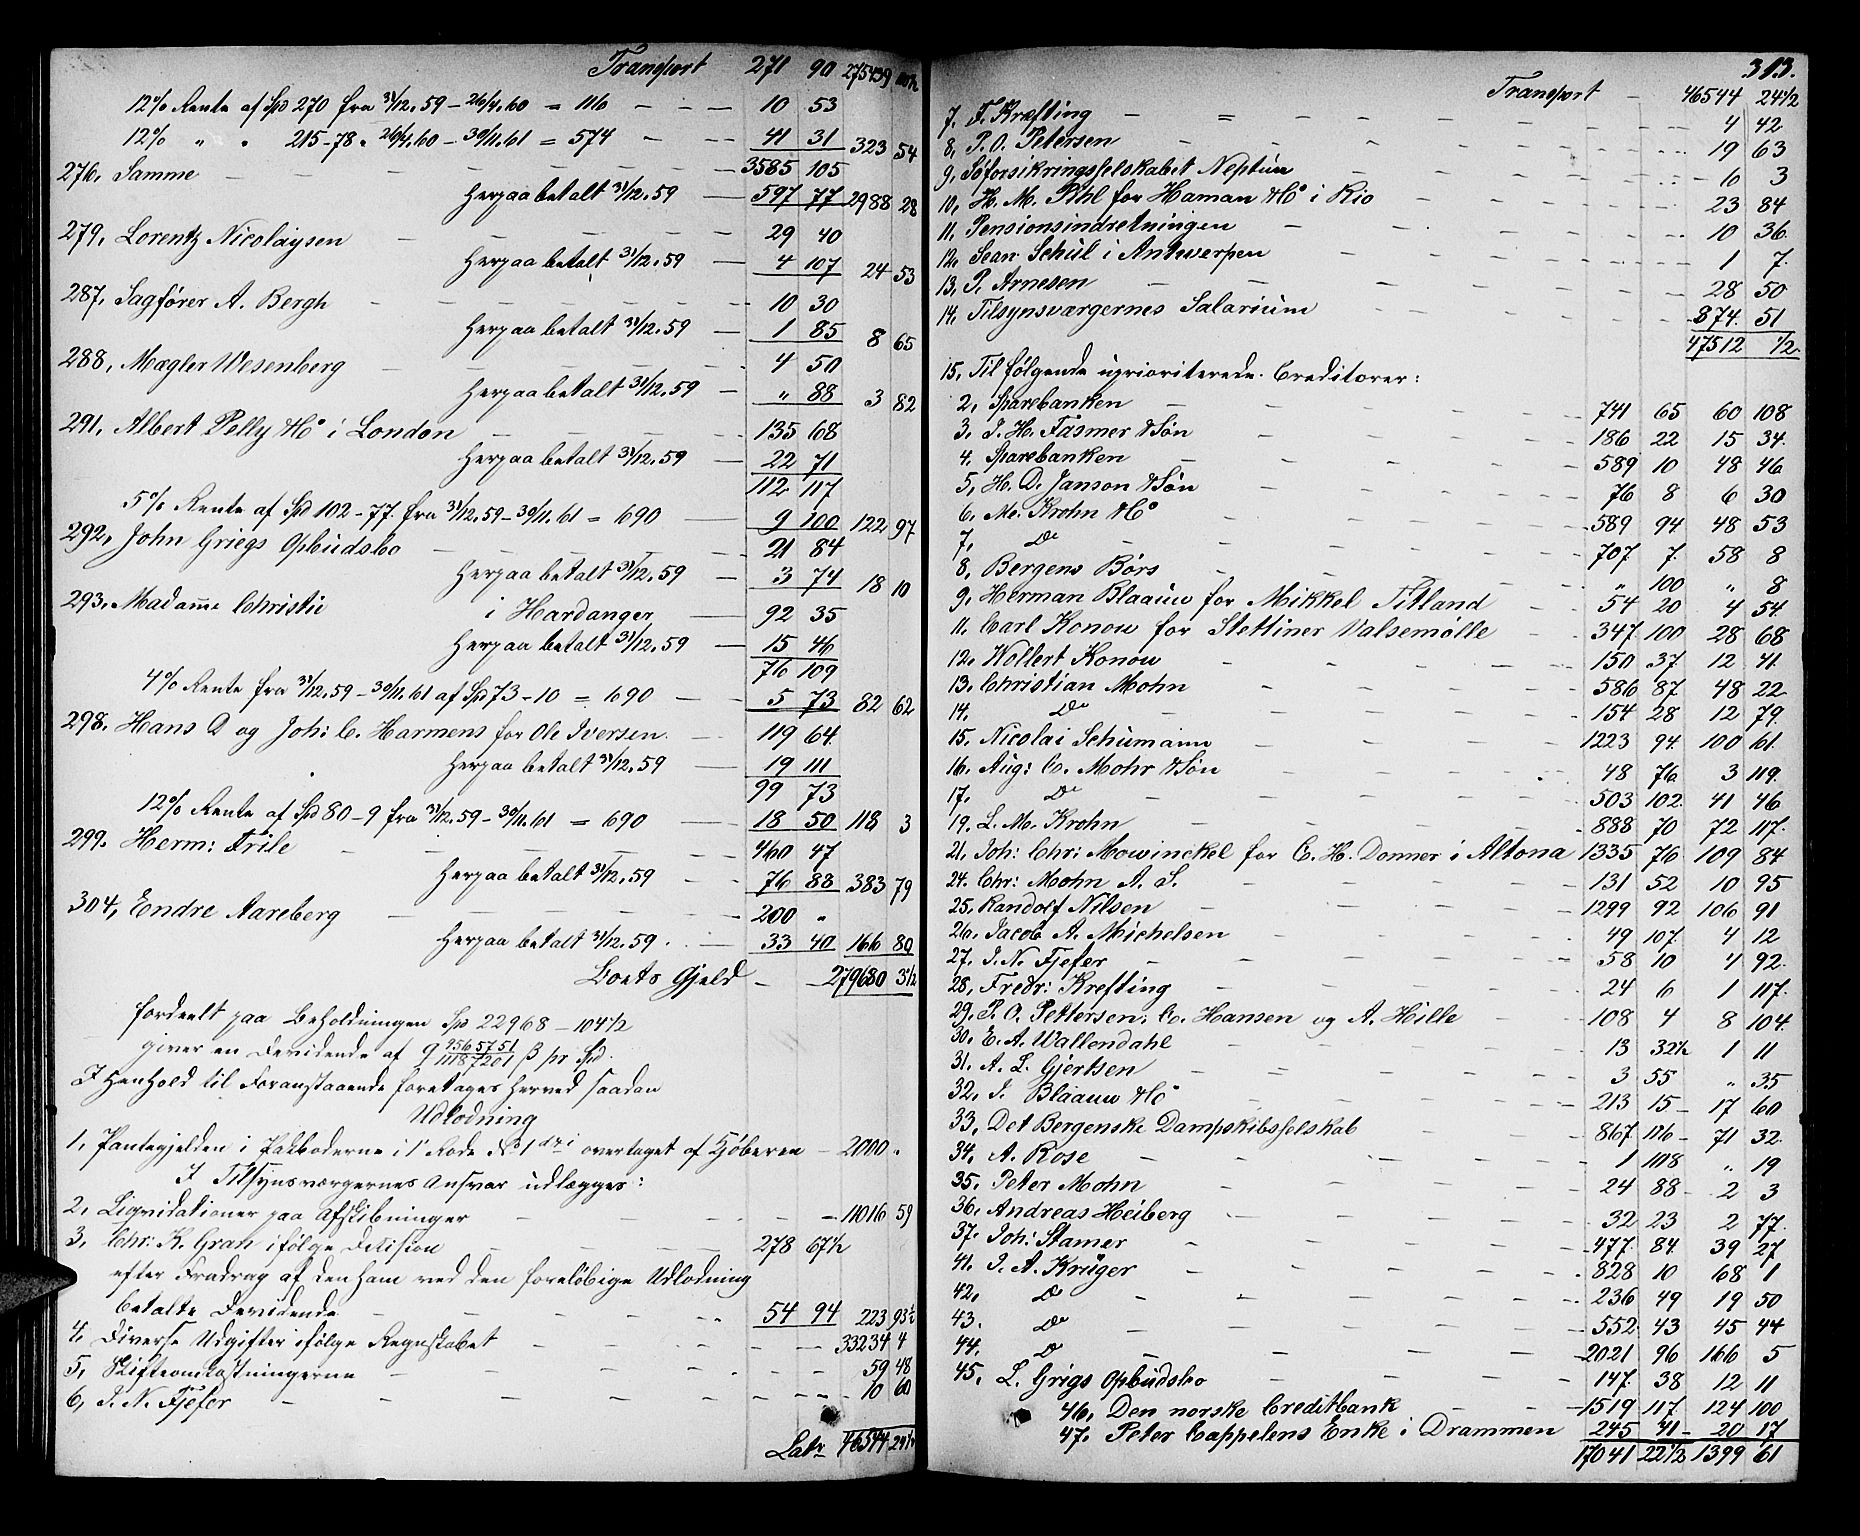 Transport 271 90 275439
12% Rente af Spd 270 fra 31/12.59 – 26/4.60 = 116 10 53
12% „ „ 215-78 „ 26/4.60 – 30/11.61 = 574 41 31 323 54
276, Samme 3585 105
herpaa betalt 31/12.59 597 77 2988 28
279, Lorentz Nicolaysen 29 40
herpaa betalt 31/12.59 4 107 24 53
287, Sagfører A. Bergh 10 30
herpaa betalt 31/12.59 1 85 8 65
288, Mægler Wesenberg 4 50
herpaa betalt 31/12.59 „ 88 3 82
291, Albert Pelly & Co i London 135 68
herpaa betalt 31/12.59 22 71
112 117
5% Rente af Spd 102-77 fra 31/12.59 – 30/11.61 = 690 9 100 122 97
292, John Griegs Opbudsbo 21 84
herpaa betalt 31/12.59 3 74 18 10
293, Madame Christie i Hardanger 92 35
herpaa betalt 31/12.59 15 46
76 109
4% Rente fra 31/12.59 – 30/11.61 af Spd 73-10 = 690 5 73 82 62
298. Hans D og Joh: C. Harmens for Ole Iversen 119 64
herpaa betalt 31/12.59 19 111
99 73
12% Rente af Spd 80-9 fra 31/12.59 – 30/11.61 = 690 18 50 118 3
299. Herm: Friele 460 47
herpaa betalt 31/12.59 76 88 383 79
304, Endre Aareberg 200 „
herpaa betalt 31/12.59 33 40 166 80
Boets Gjeld 279680 3½
fordeelt paa Beholdningen Spd 22968-104½
giver en Devidende af 9 9565751/11187201 β pr Spd.
I Henhold til Foranstaaende foretages herved saadan
Udlodning
1, Pantegjelden i Pakboderne i 1' Rode No 1 overtaget af Kjøberen 2000 „
I Tilsynsværgernes Ansvar udlægges:
2, Liqvidationer paa Afskibninger 11016 59
3, Chr: K. Gran ifølge Decision 278 67½
efter Fradrag af den ham ved den foreløbige Udlodning
betalte Devidende 54 94 223 93½
4, Diverse Udgifter ifølge Regnskabet 33234 4
5, Skifteomkostningerne 59 48
6, J. N. Fjefer 10 60
Latr 46544 24½
313.
Transport 46544 24½
7, F. Krefting 4 42
8, P. O. Petersen 19 63
9, Søforsikringsselskabet Neptun 6 3
10, H. M. Pihl for Haman & Co i Rio 23 84
11, Pensionsindretningen 10 36
12, Jean Schül i Antwerpen 1 7
13, P. Arnesen 28 50
14, Tilsynsværgernes Salarium 874 51
47512 ½
15, Til følgende uprioriterede Creditorer:
2, Sparebanken 741 65 60 108
3, J. H. Fasmer & Søn 186 22 15 34
4, Sparebanken 589 10 48 46
5, H. D. Janson & Søn 76 8 6 30
6, M. Krohn & Co 589 94 48 53
7, Do 707 7 58 8
8, Bergens Børs „ 100 „ 8
9, Herman Blaauw for Mikkel Titland 54 20 4 54
11, Carl Konow for Stettiner Valsemølle 347 100 28 68
12, Wollert Konow 150 37 12 41
13, Christian Mohn 586 87 48 22
14, Do 154 28 12 79
15, Nicolai Schumann 1223 94 100 61
16, Aug: C. Mohr & Søn 48 76 3 119
17, Do 503 102 41 46
19, L. M. Krohn 888 70 72 117
21, Joh: Chr: Mowinckel for C. H. Donner i Altona 1335 76 109 84
24, Chr: Mohn A. S. 131 52 10 95
25, Randolf Nilsen 1299 92 106 91
26, Jacob A. Michelsen 49 107 4 12
27, J. N. Fjefer 58 10 4 92
28, Fredr: Krefting 24 6 1 117
29, P. O. Pettersen, C. Hansen og A. Hille 108 4 8 104
30, E. A. Wallendahl 13 32½ 1 11
31, A. L. Gjertsen 3 55 „ 35
32, J. Blaauw & Co 213 15 17 60
33, Det Bergenske Dampskibsselskab 867 116 71 32
34, A. Rose 1 118 „ 19
35, Peter Mohn 24 88 2 3
36, Andreas Heiberg 32 23 2 77
37, Joh: Stamer 477 84 39 27
41, J. A. Krüger 828 10 68 1
42, Do 236 49 19 50
43, Do 552 43 45 44
44, Do 2021 96 166 5
45, L. Grigs Opbudsbo 147 38 12 11
46, Den norske Creditbank 1519 117 124 100
47, Peter Cappelens Enke i Drammen 245 41 20 17
17041 22½ 1399 61